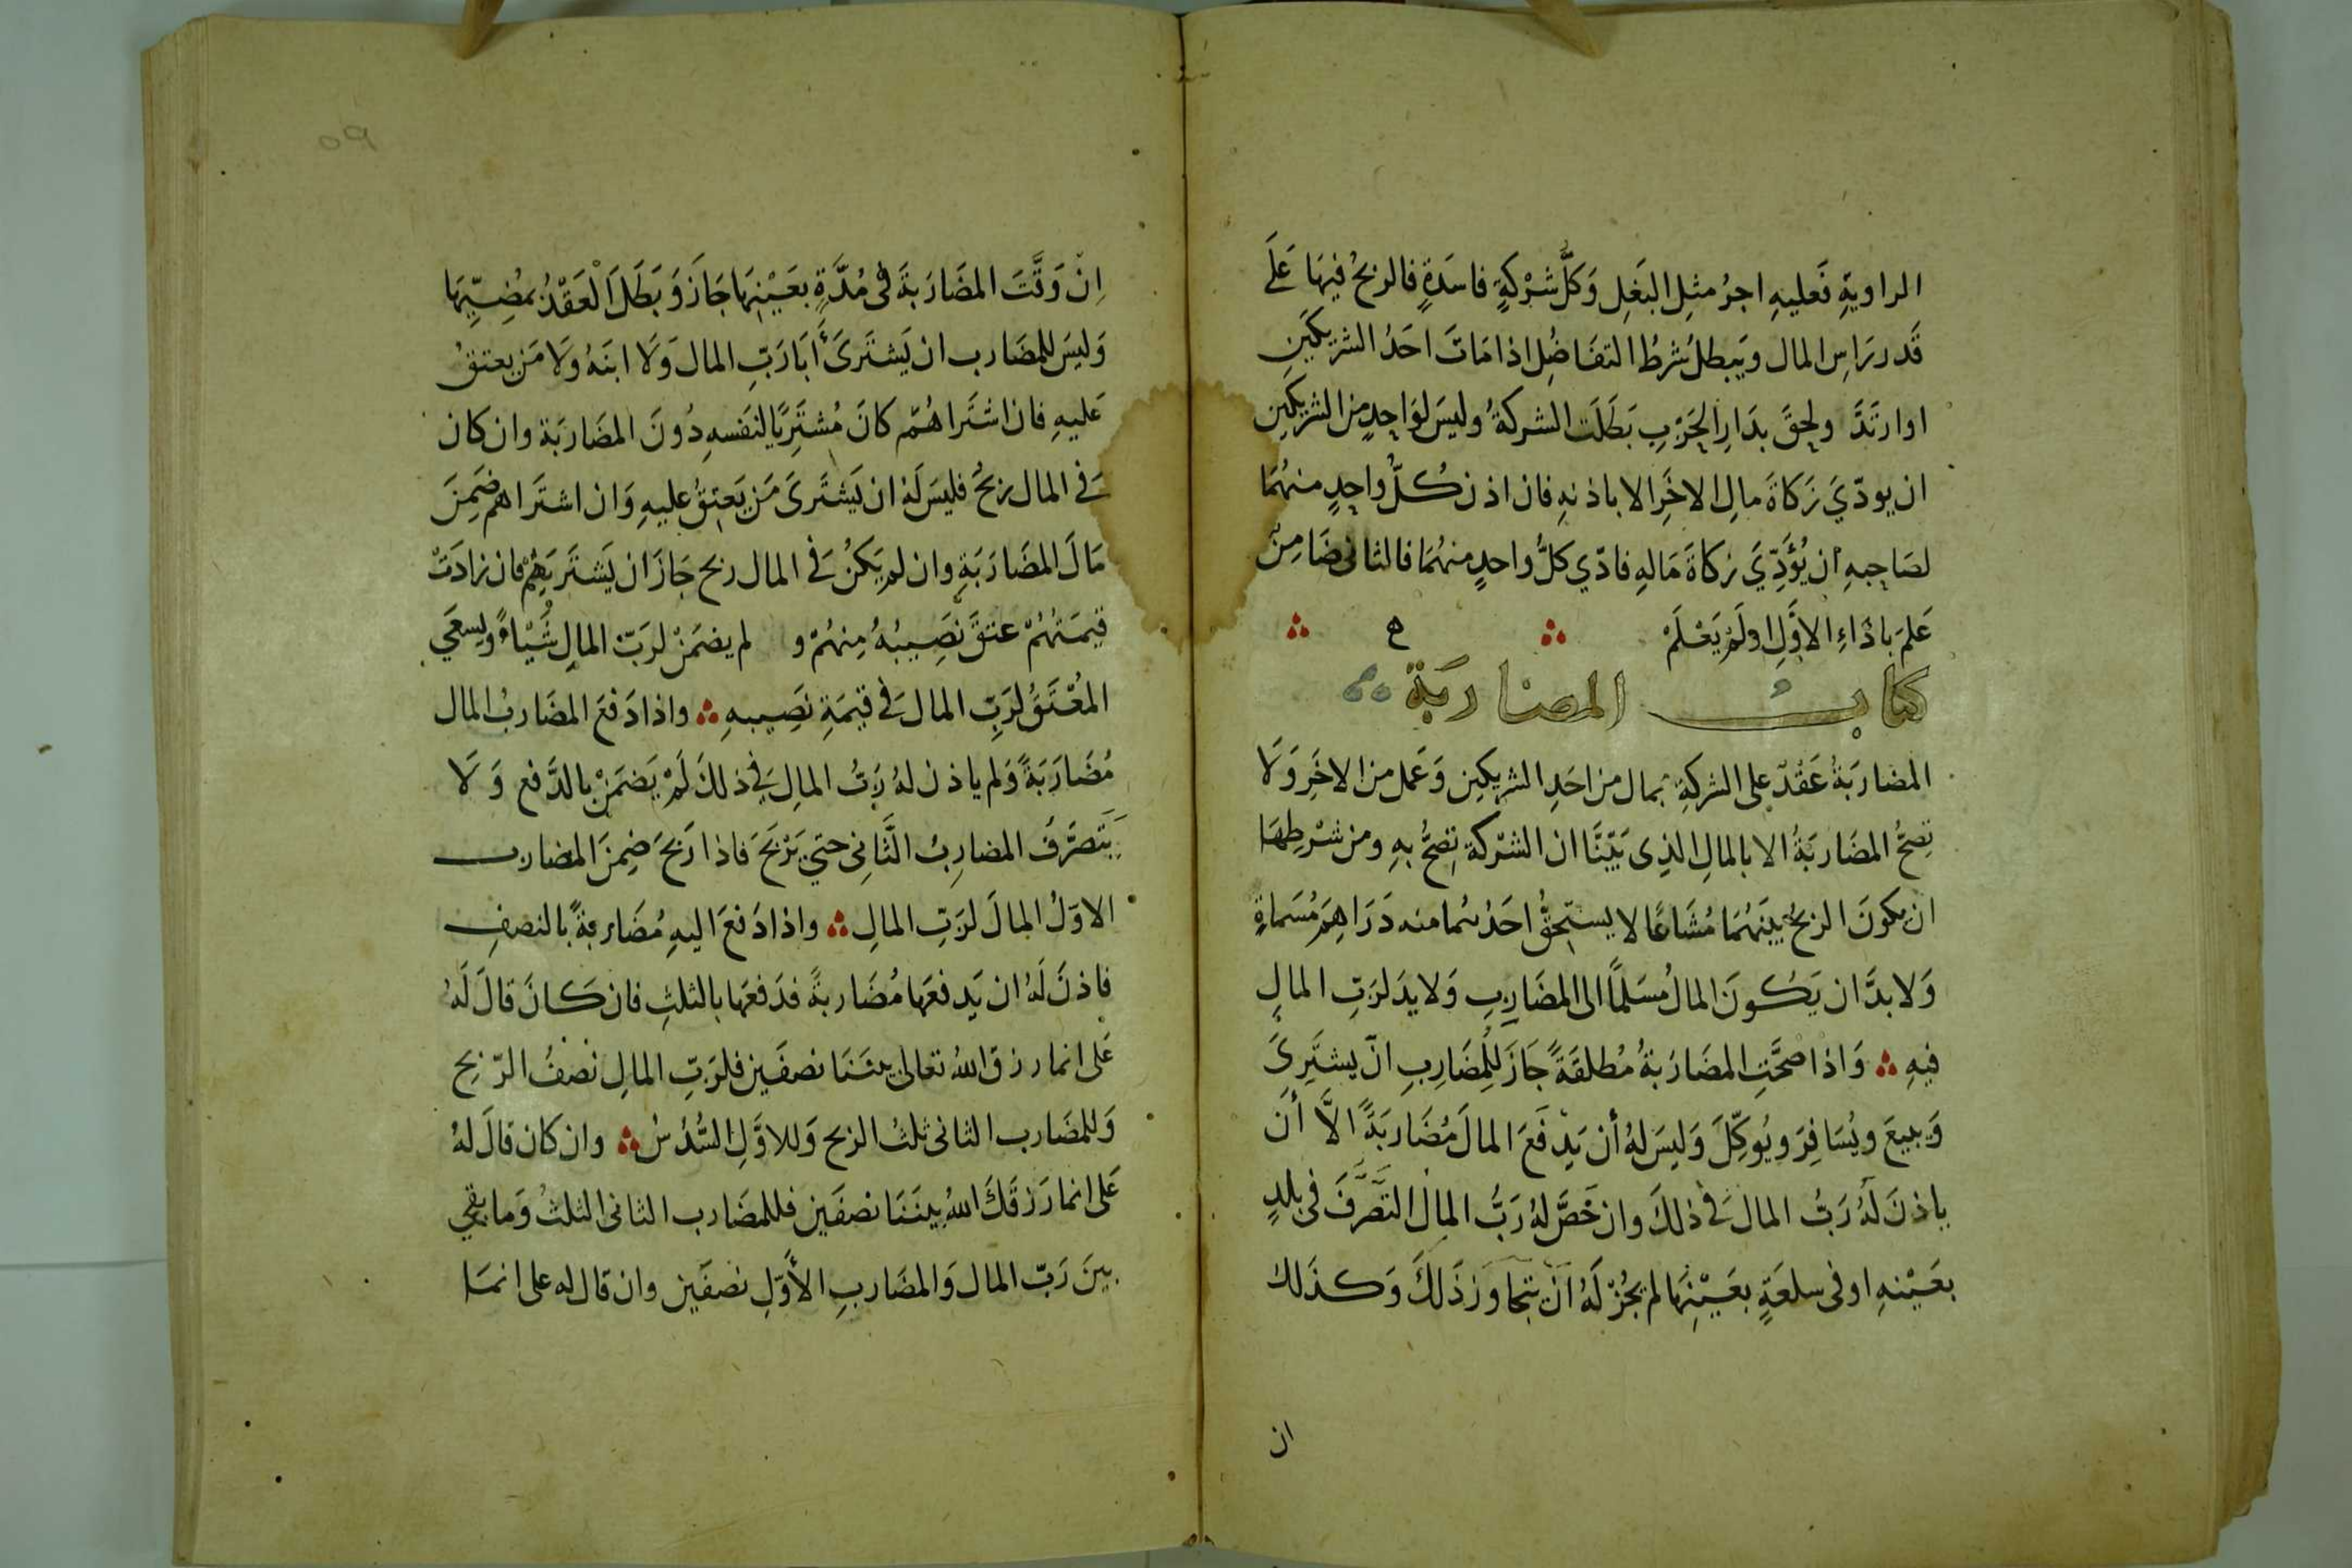 الراويةِ فَعليهِ اجرُ مثلِ البَغلِ وَكلُّ شرْكةٍ فاسدَةٍ فالربحُ فيهَا عَلَے
قَدررَاسِ المال ويَبطلُ شرطُ التفَاضُلِ اذا مَاتَ احَدُ الشريكَينِ
اوارتَدَّ ولحِقَ بدَارِ الحَرْبِ بَطلَت الشركةُ وليسَ لوَاحِدٍ من الشريكَين
ان يودّيَ زَكاةَ مالِ الاخَرِ الا باذنهِ فان اذن كلُّ واحِدٍ منهُمَا
لصَاحِبهِ أن يُؤَدِّيَ زكاةَ مَالهِ فادّي كلُّ واحدٍ منهُمَا فالثانى ضَامِنٌ
عَلمَ باذاءِ الاوَّلِ اولَمْ يَعْلَمْ ه
كتابُ المضاربَة
المضاربَةُ عَقْدٌ على الشركةِ بمال من احَدِ الشريكين وَعَمل من الاخَرِ وَلَا
تصِحُّ المضَاربَةُ الا بالمالِ الذِى بَيّنَّا ان الشرْكة تصِحُّ بهِ ومن شرْطِهَا
ان يكونَ الربحُ بينَهُمَا مُشَاعًا لا يستحِقُّ احَدُهُما منه دَرَاهِمَ مُسَماةٍ
وَلا بدَّ ان يَكونَ المالُ مُسَلمًا الى المضَاربِ وَلا يدَ لرَبّ المالِ
فيهِ وَاذا صحَّتِ المضَاربَةُ مُطلقَةً جَازَ للمُضَارِبِ انّ يشتَرِىَ
وَيبيعَ ويُسَافِرَ ويُوكِّلَ وَليسَ لهُ أن يَدِفَعَ المالَ مُضَاربَةً الَّا أن
ياذنَ لَهُ رَبُّ المال فَى ذلكَ وان خَصَّ لهُ رَبُّ المالِ التَصَرَّفَ فى بلدٍ
بعَيْنهِ اوفى سلعَةٍ بعَيْنِهَا لم يجُزْ لَهُ انّ يتجاوزذَلكَ وَكذَلك
ان
٥٩
اِنْ وَقَّتَ المضَاربَةَ فى مُدَّةٍ بعَيْنِهَا جَازَ وَبَطَلَ الْعَقْدُ بمُضِيِّهَا
وَليسَ للمضَارب ان يَشتَرىَ أَبَا رَبِّ المال وَلَا ابنَهُ وَلَا مَن يعتقُ
عَليهِ فان اشتَراهُمْ كانَ مُشتَرِيًا لنَفسهِ دُونَ المضَاربَة وان كان
فَى المال ربحُ فليسَ لَهُ ان يَشتَرىَ مَن يَعتِقُ عليهِ وَان اشتَراهم ضَمِنَ
مَالَ المضَاربَةِ وان لم يَكنْ فَى المال ربح جَازَ ان يَشتَريَهُمْ فان زادَتْ
قيمَتهُمْ عتقَ نَصِيبُهُ مِنهُمْ و لم يضمَنْ لرَبّ المالِ شَيْاءً ويسعَي
المُعْتَقُ لرَبِّ المال فَى قيمَةِ نصِيبهِ واذا دَفعَ المضَاربُ المال
مُضَارَبَةً وَلم ياذن لهُ رَبُّ المالِ فَى ذلكَ لَمْ يَضمَنْ بالدَّفع وَلَا
يَتَصَرَّفُ المضارِبُ الثَّانِى حتي يَرْبَحَ فَاذا رَبحَ ضمِنَ المضارب
الاوّلُ المالَ لرَبِّ المالِ واذا دَفعَ اليهِ مُضَاربةً بالنصفِ
فاذنَ لَهُ ان يَدفعَهَا مُضَاربةً فدَفعَهَا بالثلثِ فان كَانَ قالَ لَهُ
عَلى انما رزقَ اللهُ تعالى بينَنَا نصفَين فلرَبّ المالِ نصْفُ الرّبحِ
وَللمضَارب الثانى ثلثُ الربح وَللاوَّلِ السُّدُسُ وان كان قالَ لهُ
عَلى انما رَزقَكَ اللهُ بينَنَا نصفَين فللمضَارب الثانى الثلثُ وَما بقي
بينَ رَبّ المال وَالمضَاربِ الأَوّلِ نصفَين وان قال له على انمَا